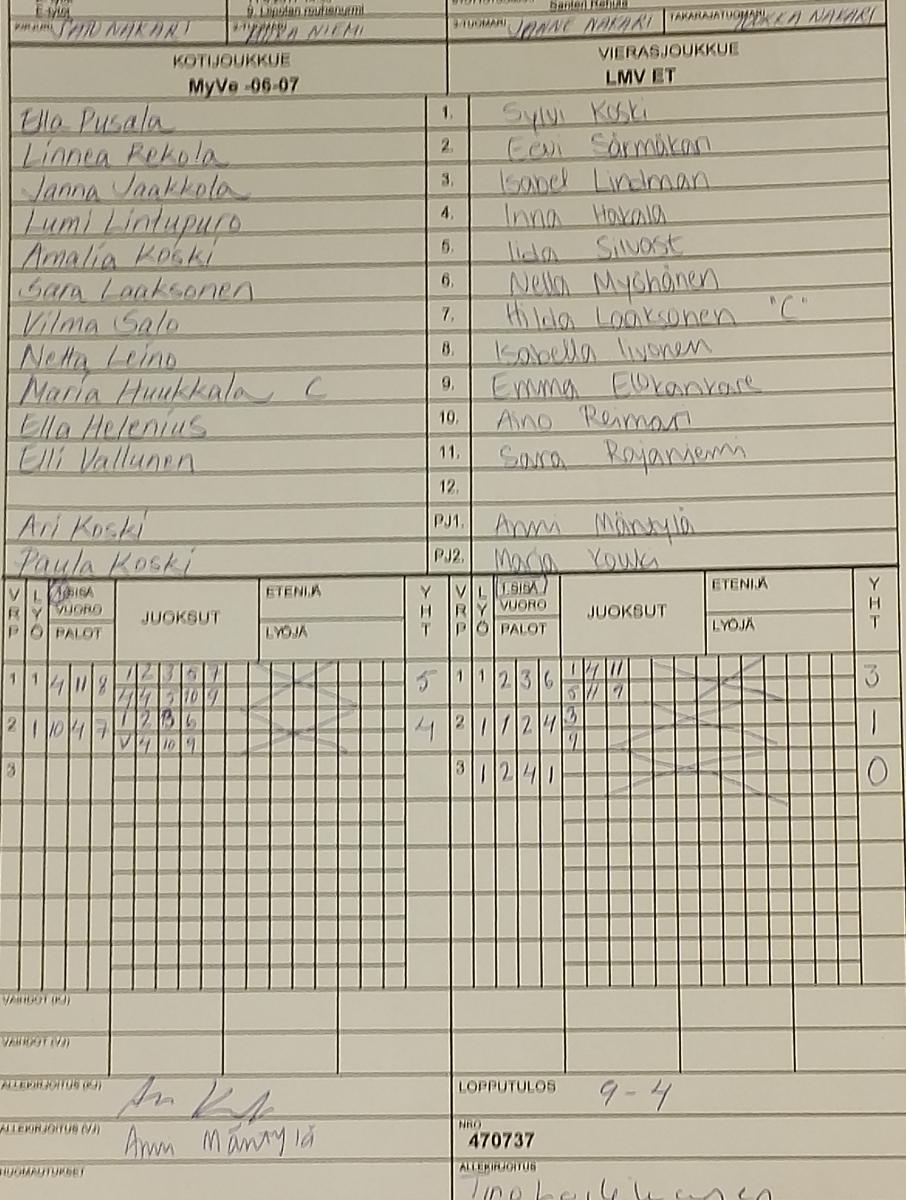 E-tytöt
SATU NAKARI NIEMI 3-TUOMARI JANNE NAKARI TAKARAJATUOMARI JUKKA NAKARI
KOTIJOUKKUE VIERASJOUKKUE
MyVe -06-07 LMV ET
Ella Pusala 1. Sylvi Koski
Linnea Rekola 2. Eevi Särmäkari
Janna Jaakkola 3. Isabel Lindman
Lumi Lintupuro 4. Inna Hakala
Amalia Koski 5. Iida Silvast
Sara Laaksonen 6. Nella Myöhänen
Vilma Salo 7. Hilda Laaksonen "C"
Netta Leino 8. Isabella Iivonen
Maria Huukkala C 9. Emma
Ella Helenius 10. Aino Reimari
Elli Vallunen 11. Sara Rajaniemi
12.
Ari Koski PJ1. Anni Mäntylä
Paula Koski PJ2. Marja
VRP LYÖ 1.SISÄ VUORO PALOT JUOKSUT ETENIJÄ LYÖJÄ YHT VRP LYÖ 1.SISÄ VUORO PALOT JUOKSUT ETENIJÄ LYÖJÄ YHT
1 1 4 11 8 1 2 3 5 7 5 1 1 2 3 6 1 4 11 3
4 4 5 10 9 5 11 9
2 1 10 4 7 1 2 3 6 4 2 1 1 2 4 3 1
V 4 10 9 9
3 3 1 2 4 1 0
VAIHDOT (KJ)
VAIHDOT (VJ)
ALLEKIRJOITUS (KJ) LOPPUTULOS 9-4
ALLEKIRJOITUS (VJ) Anni Mäntylä NRO 470737
HUOMAUTUKSET ALLEKIRJOITUS